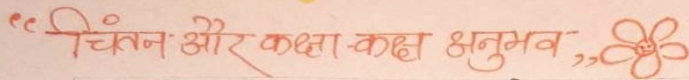 “चिंतन और कक्षा-कक्ष अनुभव”